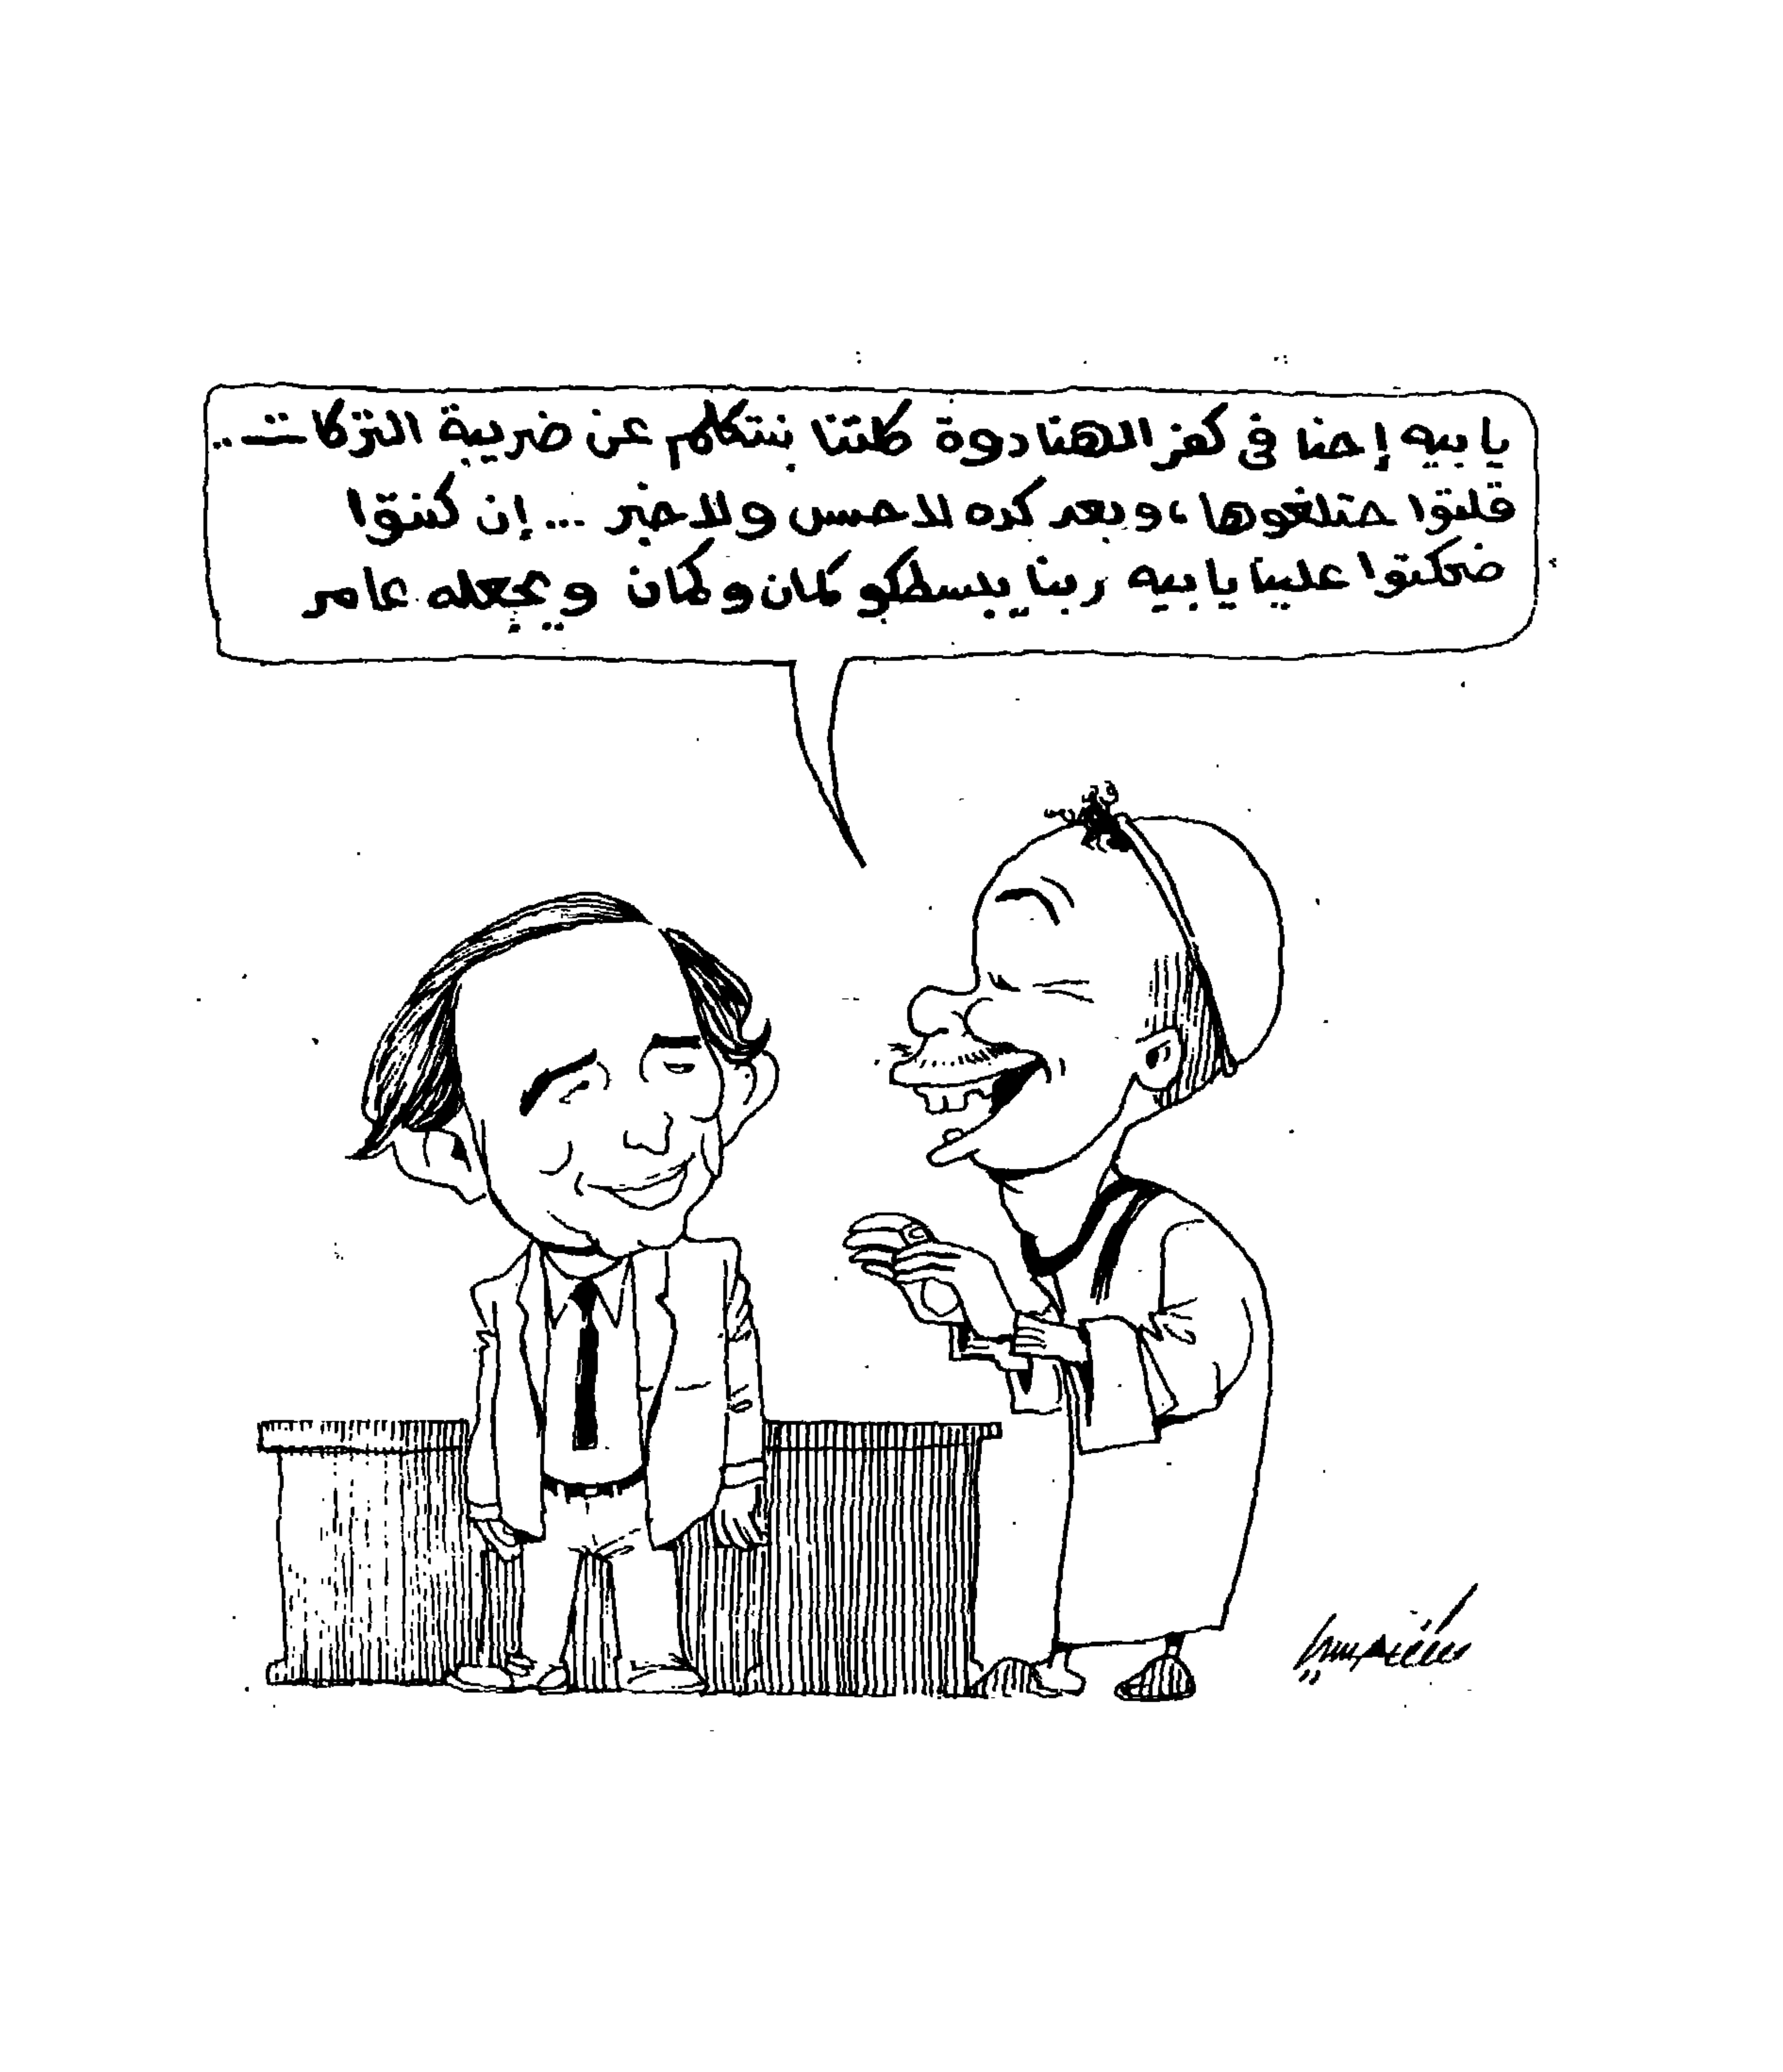 يا بيه إحنا في كفر الهنادوة كلتنا بنتكلم عن ضريبة التركات..
قلتوا حتلغوها، وبعد كده لا حس ولا خبر ... إن كنتوا
ضحكتوا علينا يا بيه ربنا يبسطكو كمان وكمان ويجعله عامر